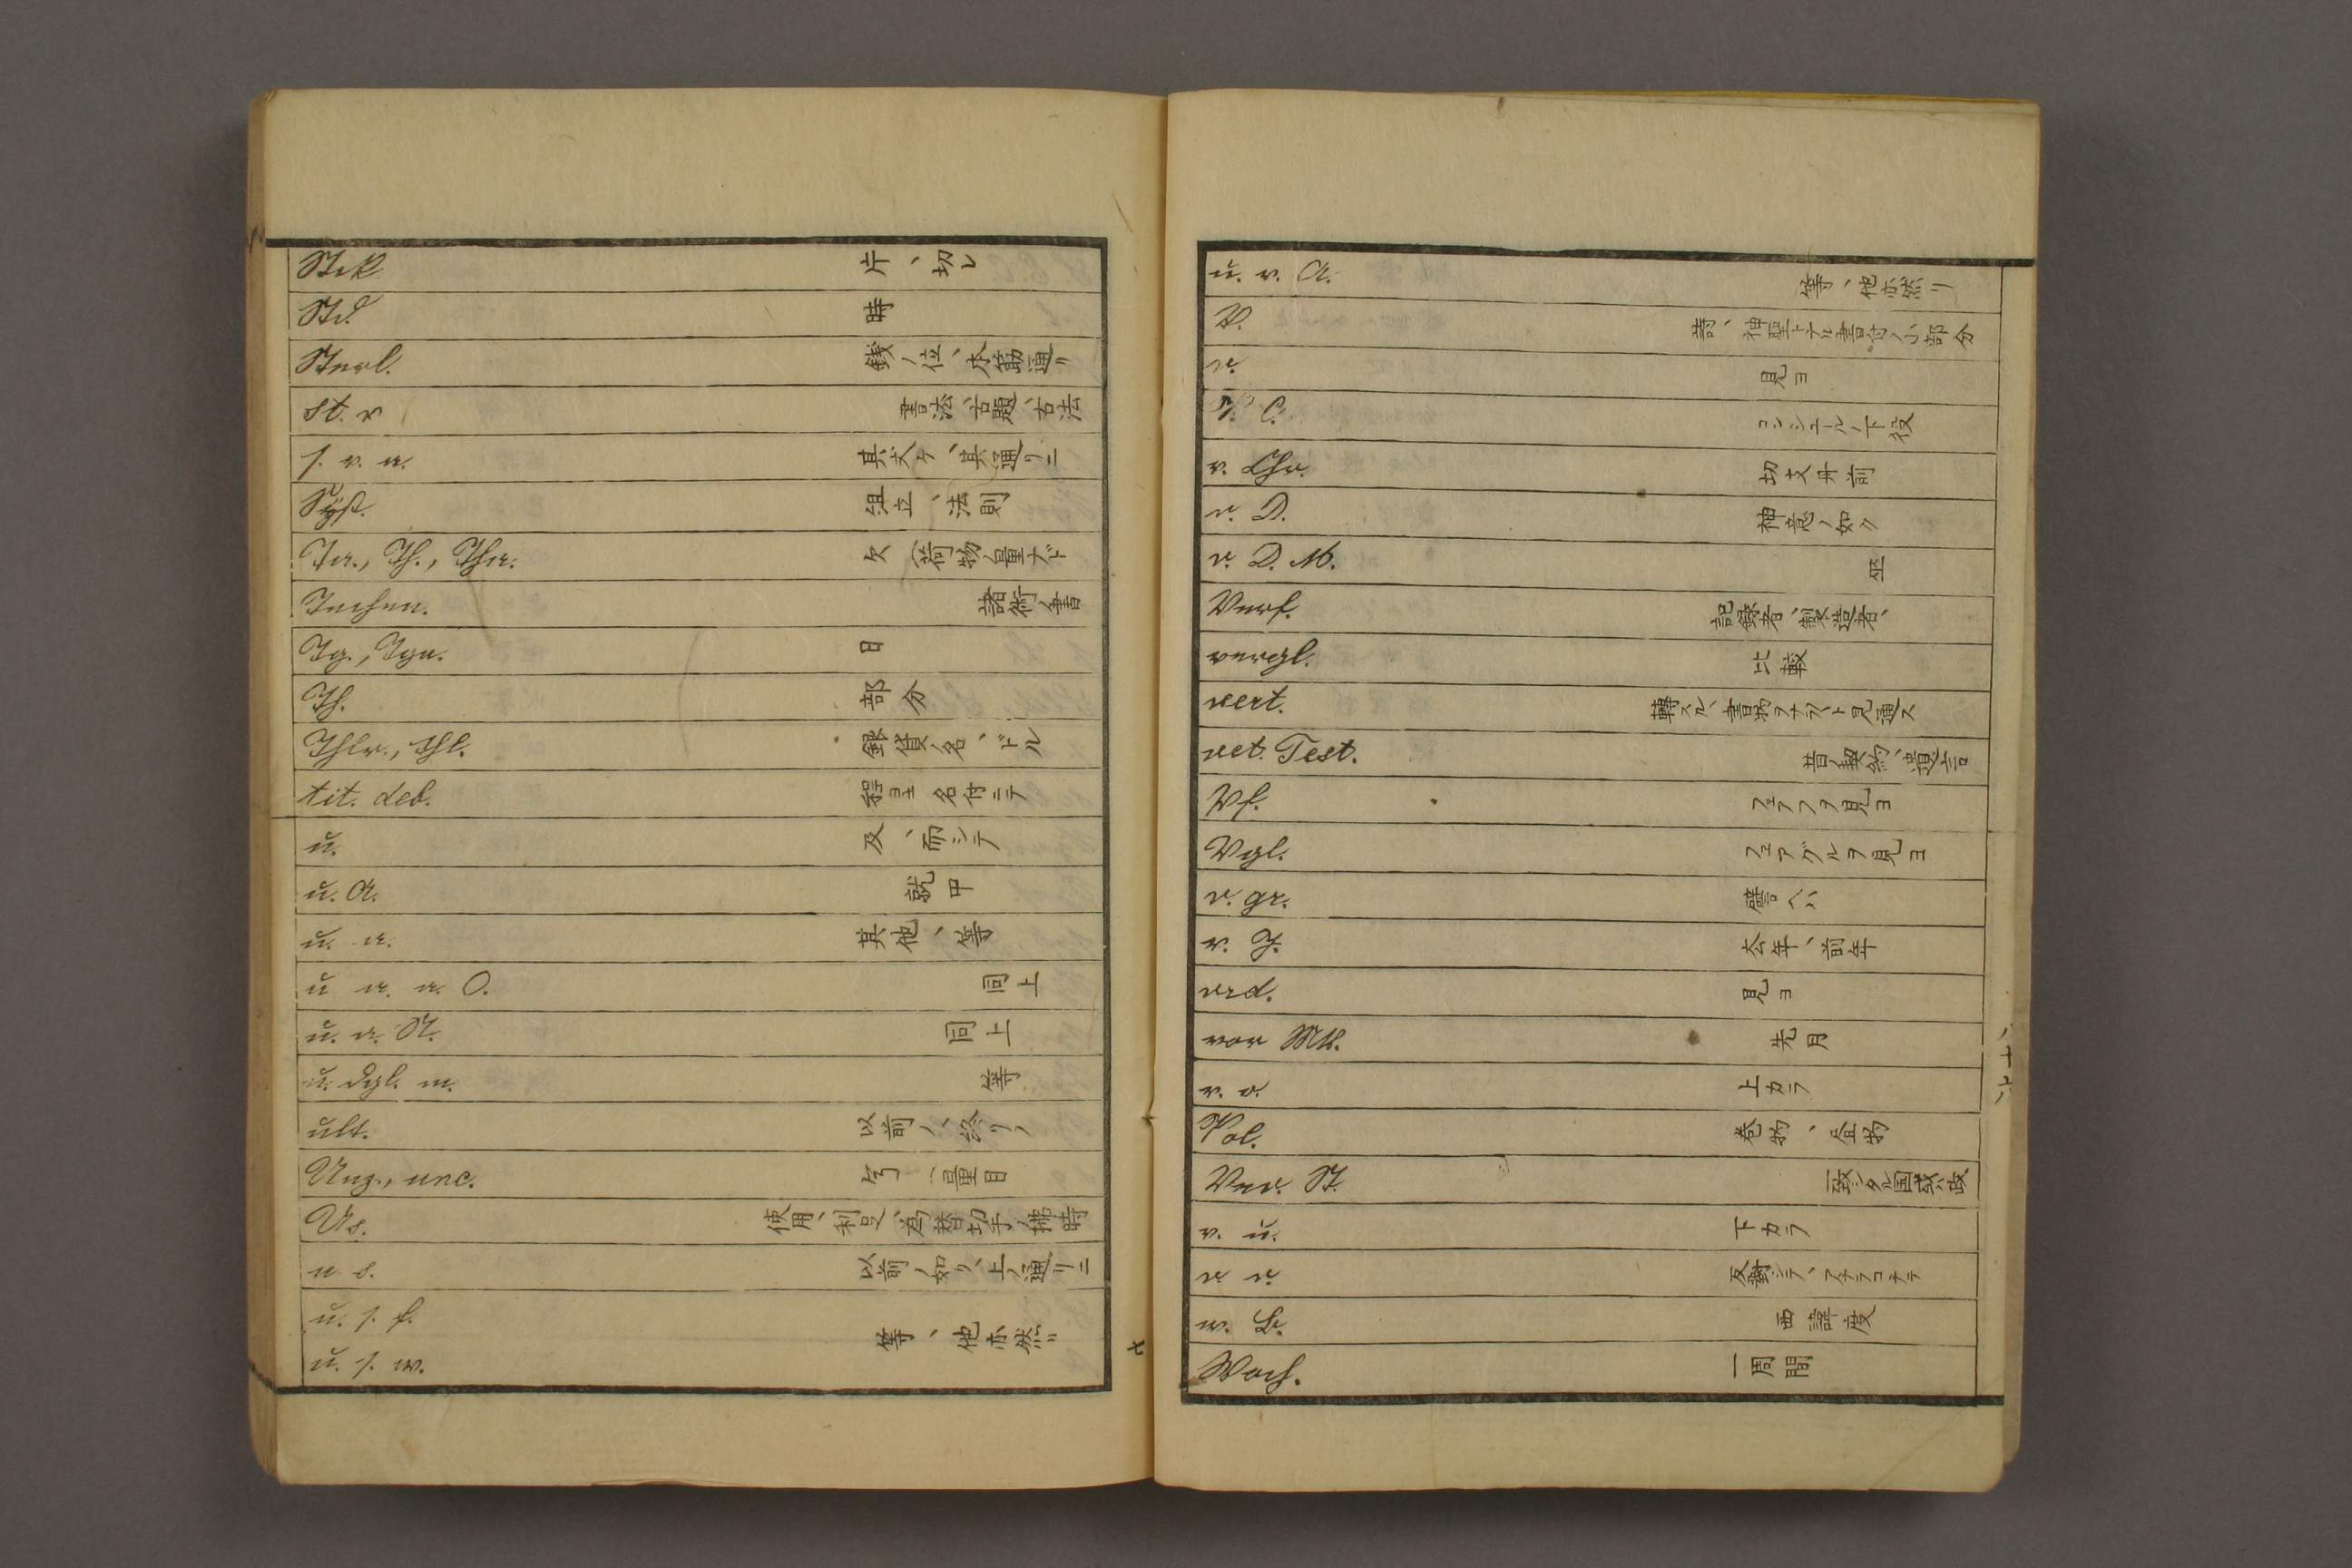 Stck 片、切レ
Std. 時
Sterl. 銭ノ位、本筋通リ
st. v 書法、古題、古法
s. v. a. 其丈ケ、其通リニ
Syst. 組立、法則
Ta., Th., Tha. 欠(荷物ノ量ナド
Techn. 諸術ノ書
Tg., Tge. 日
Th. 部分
Thlr., thl. 銀貨ノ名、ドル
tit. deb. 程ヨキ名付ニテ
u. 及、而シテ
u. A. 就中
u. a. 其他、等
u a. a. O. 同上
u. a. St. 同上
u. dgl. m. 等
ult. 以前ノ、終リノ
Unz., unc. (量目
Us. 使用、利足、為替切手ノ拂時
u s. 以前ノ如ク、上ノ通リニ
u. s. f.
u. s. w. 等、他亦然リ
七
u. v. A. 等、他亦然リ
V. 詩、神聖ナル書付ノ小部分
v. 見ヨ
V. C. コンシュールノ下役
v. Chr. 切支丹前
v. D. 神意ノ如ク
v. D. M.
Verf. 記録者、製造者、
vergl. 比較
vert. 轉スル、書物ヲナラト見通ス
vet. Test. 昔ノ契約、遺言
Vf. フェアフヲ見ヨ
Vgl. フェアグルヲ見ヨ
v. gr. 譬ヘハ
v. J. 去年、前年
vid. 見ヨ
vor Mts. 先月
v. o. 上カラ
Vol. 巻物、疊物
Ver. St. 一致シタル国或ハ政
v. u. 下カラ
v. v. 反對シテ、
w. L. 西諱度
Woch. 一周間